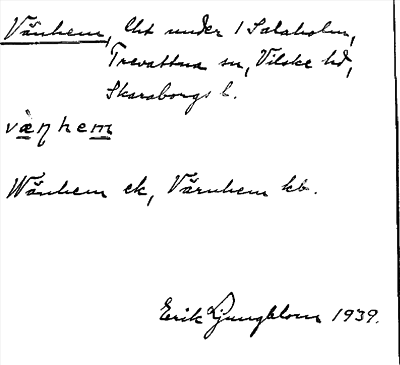 Vänhem, lht under 1 Salaholm,
Trevattna sn, Vilske hd,
Skaraborgs l.
vænhem
Wänhem ek, Värnhem kb.
Erik Ljungblom 1939.